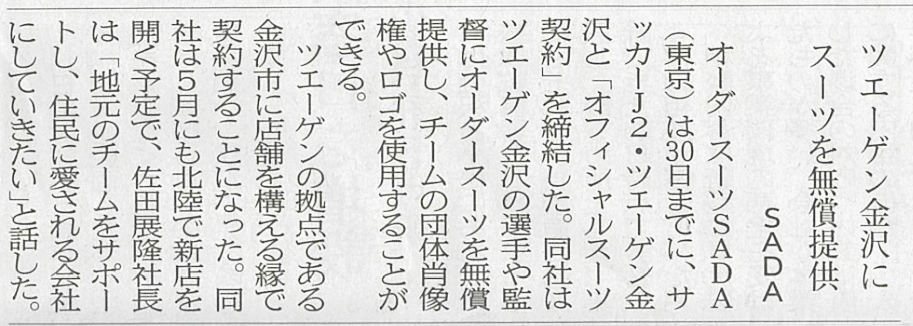 ツエーゲン金沢に
スーツを無償提供
ＳＡＤＡ
オーダースーツＳＡＤＡ
（東京）は30日までに、サ
ッカーＪ２・ツエーゲン金
沢と「オフィシャルスーツ
契約」を締結した。同社は
ツエーゲン金沢の選手や監
督にオーダースーツを無償
提供し、チームの団体肖像
権やロゴを使用することが
できる。
ツエーゲンの拠点である
金沢市に店舗を構える縁で
契約することになった。同
社は５月にも北陸で新店を
開く予定で、佐田展隆社長
は「地元のチームをサポー
トし、住民に愛される会社
にしていきたい」と話した。